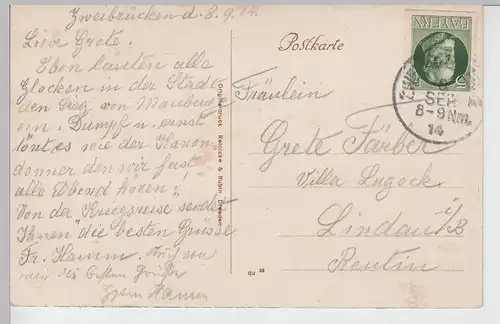 Zweibrücken d. 8.9.14.
Liebe Grete!
Eben läuten alle
Glocken in der Stadt
den Sieg von Maubeuge
ein. Dumpf u. ernst
tönt es wie der Kanonen
donner den wir fast
alle Abend hören!
Von der Kriegsreise sendet
Ihnen die besten Grüsse
Fr. Hamm. Auch von
mir die besten Grüße
Hamm
Postkarte
Fräulein
Grete Färber
Villa Lugeck.
Lindau i/B
Reutin
Original-Druck Reinicke & Rubin Dresden
QU 28
BAYERN
SEP
8-9 Nm.
14